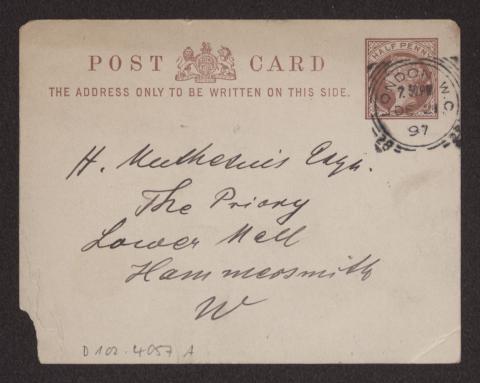 POST CARD
THE ADDRESS ONLY TO BE WRITTEN ON THIS SIDE.
HALF PENNY
LONDON. W.C.
7.30 PM
DE 21
97
28
H. Muthesius Esqu.
The Priory
Lower Mall
Hammersmith
W
D 102-4057 A